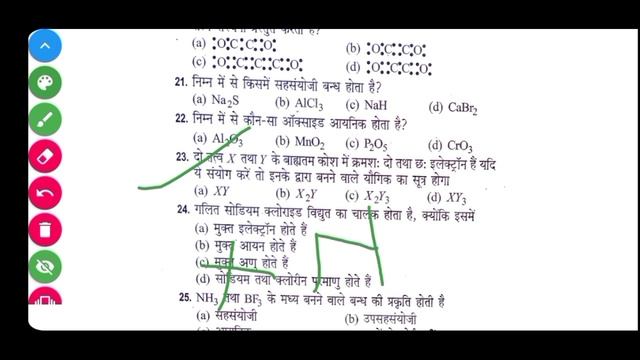 (a) :O:C:C:O: (b) :O:C::C:O:
(c) :O::C::C::C:O: (d) :O::C:C:O:
21. निम्न में से किसमें सहसंयोजी बन्ध होता है?
(a) Na₂S (b) AlCl₃ (c) NaH (d) CaBr₂
22. निम्न में से कौन-सा ऑक्साइड आयनिक होता है?
(a) Al₂O₃ (b) MnO₂ (c) P₂O₅ (d) CrO₃
23. दो तत्व X तथा Y के बाह्यतम कोश में क्रमश: दो तथा छ: इलेक्ट्रॉन हैं यदि
ये संयोग करें तो इनके द्वारा बनने वाले यौगिक का सूत्र होगा
(a) XY (b) X₂Y (c) X₂Y₃ (d) XY₃
24. गलित सोडियम क्लोराइड विद्युत का चालक होता है, क्योंकि इसमें
(a) मुक्त इलेक्ट्रॉन होते हैं
(b) मुक्त आयन होते हैं
(c) मुक्त अणु होते हैं
(d) सोडियम तथा क्लोरीन परमाणु होते हैं
25. NH₃ तथा BF₃ के मध्य बनने वाले बन्ध की प्रकृति होती है
(a) सहसंयोजी (b) उपसहसंयोजी